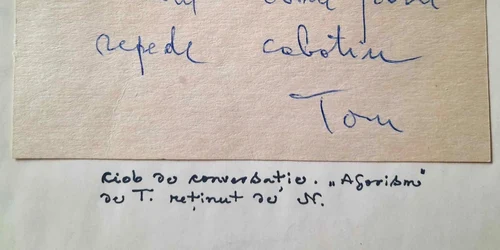 repede cabotin
Tom
Ciob de conversație. „Aforism"
de T. reținut de N.